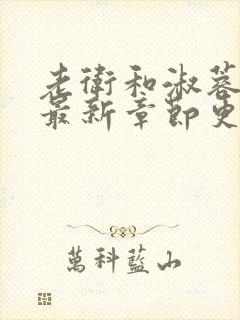 老衛和淑蓉
最新章節更
萬科藍山